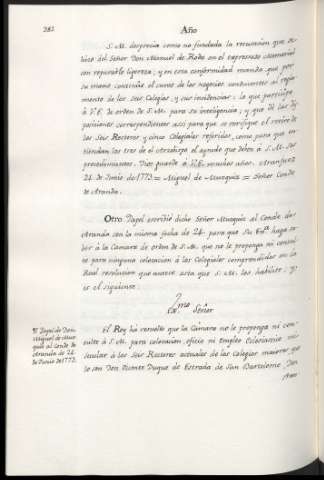 282
Año
S. M. desprecia como no fundada la recusacion que se
hice del Señor Don Manuel de Roda en el expresado Memorial
con reparable ligereza; y en esta conformidad manda que por
su mano continúe el curso de los negocios concernientes al
mento de los Seis Colegios, y sus incidencias: lo que participo
à V.E. de orden de S. M. para su inteligencia; y que dé las dis
posiciones correspondientes assi para que se verifique el retiro de
los Seis Rectores y cinco Colegiales referidos, como para que en
tiendan los tres de el Arzobispo el agrado que deben à S. M. sus
procedimientos. Dios guarde à V.E. muchos años. Aranjuez
24 de Junio de 1773 = Miguel de Muzquiz = Señor Conde
de Aranda.
Otro Papel escribió dicho Señor Muzquiz al Conde de
Aranda con la misma fecha de 24 para que Su Exª haga sa
ber à la Camara de orden de S. M. que no le proponga ni consul
te para ninguna colocacion à los Colegiales comprendidos en la
Real resolucion que antecede asta que S. M. los habilite: y
es el siguiente.
Exmo Señor
Papel de Don
Miguel de Muz
quiz al Conde de
Aranda de 24
de Junio de 1773.
El Rey hà resuelto que la Cámara no le proponga ni con
sulte à S. M. para colocacion, oficio ni empleo Eclesiastico ni
secular à los Seis Rectores actuales de los Colegios mayores que
lo son Don Vicente Duque de Estrada de San Bartolomé, Don